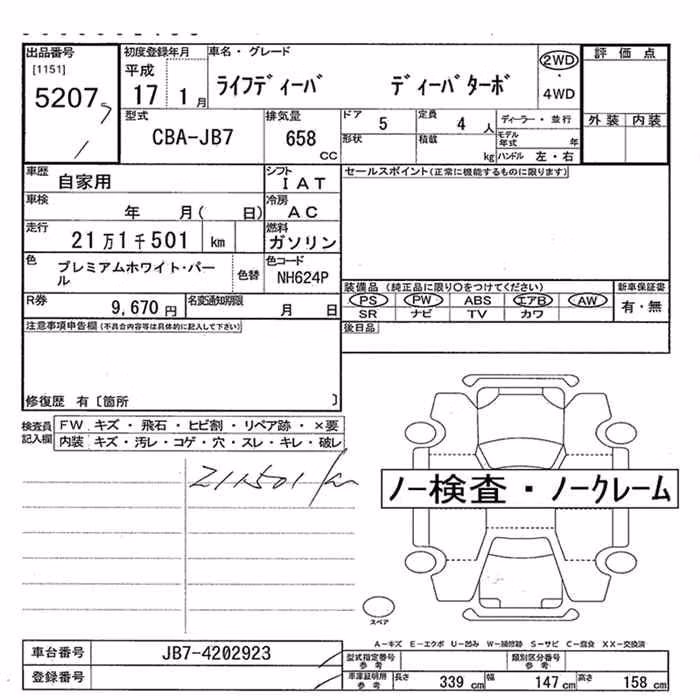 出品番号 初度登録年月 車名・グレード 2WD・4WD 評価点
[1151] 平成
5207 17 1月 ライフディーバ ディーバターボ
型式 排気量 ドア 5 定員 4人 ディーラー・並行 外装 内装
CBA-JB7 658 CC 形状 積載 kg モデル年式 年
ハンドル 左・右
車歴 自家用 シフト IAT セールスポイント(正常に機能するものに限ります)
車検 年 月( 日) 冷房 AC
走行 21万1千501 km 燃料 ガソリン
色 プレミアムホワイト・パール 色替 色コード NH624P
装備品 (純正品に限り○をつけてください) 新車保証書
R券 9,670円 名変通知期限 月 日 PS PW ABS エアB AW 有・無
SR ナビ TV カワ
注意事項申告欄(不具合内容等は具体的に記入して下さい) 後日品
修復歴 有〔箇所 〕
検査員記入欄 FW キズ・飛石・ヒビ割・リペア跡・×要
内装 キズ・汚レ・コゲ・穴・スレ・キレ・破レ
211501km
ノー検査・ノークレーム
スペア
A-キズ E-エクボ U-凹み W-補修跡 S-サビ C-腐食 XX-交換済
車台番号 JB7-4202923 型式指定番号 参考 類別区分番号 参考
登録番号 車庫証明用 参考 長さ 339 cm 幅 147 cm 高さ 158 cm